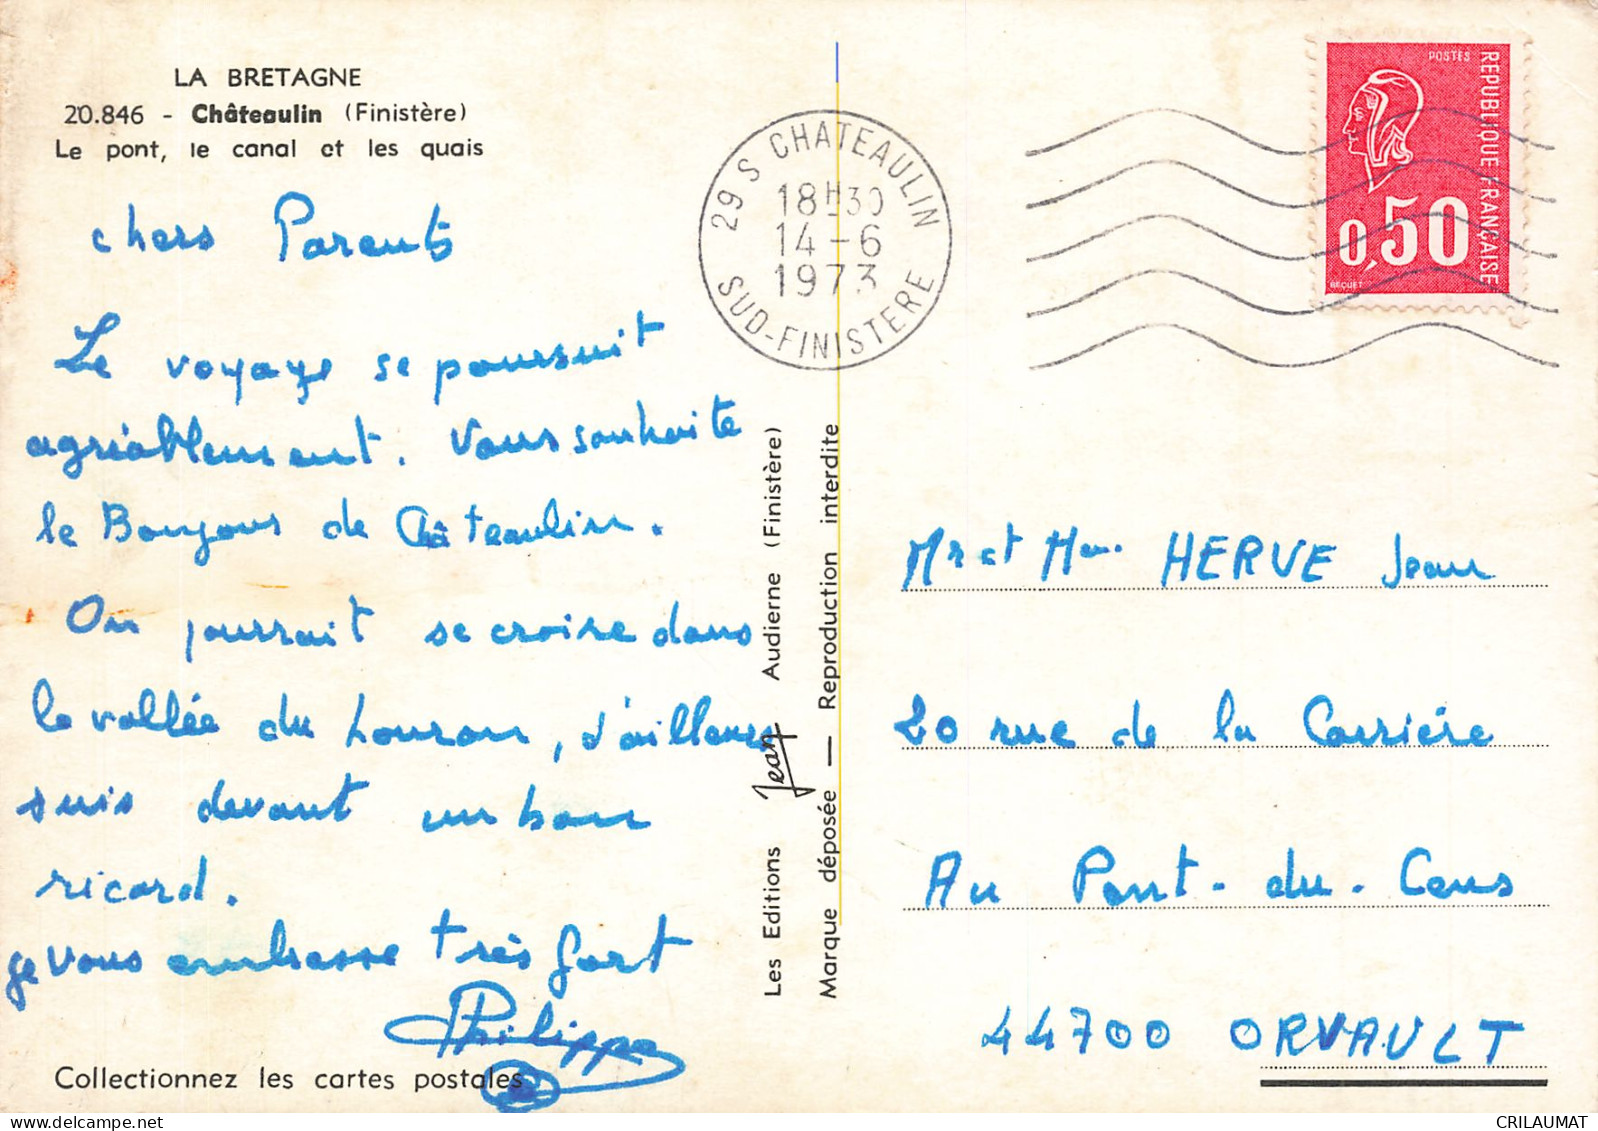 LA BRETAGNE
20.846 - Châteaulin (Finistère)
Le pont, le canal et les quais
chers Parents
Le voyage se poursuit
agréablement. Vous souhaite
le Bonjour de Châteaulin.
On pourrait se croire dans
la vallée du Louron, d'ailleurs
suis devant un bon
ricard.
je vous embrasse très fort
Philippe
Collectionnez les cartes postales
29 S CHATEAULIN
18H30
14-6
1973
SUD-FINISTERE
Les Editions Jean Audierne (Finistère)
Marque déposée — Reproduction interdite
POSTES
REPUBLIQUE FRANÇAISE
0,50
BEQUET
Mr et Mme HERVE Jean
20 rue de la Carrière
Au Pont-du-Cens
44700 ORVAULT
CRILAUMAT